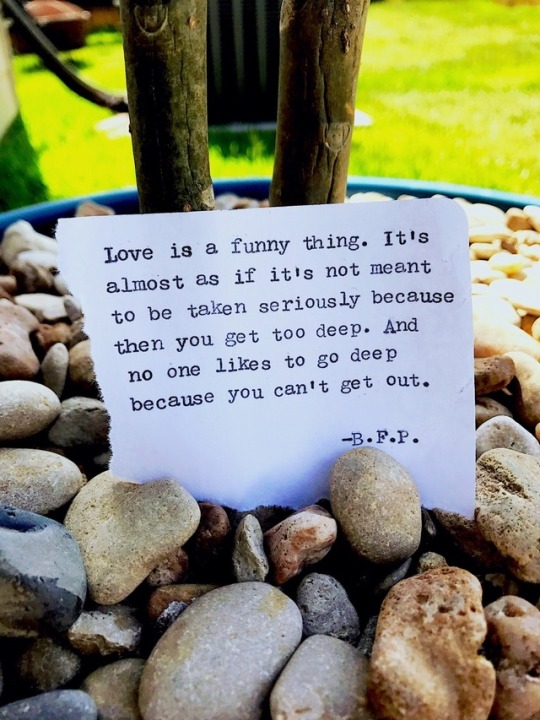 Love is a funny thing. It's
almost as if it's not meant
to be taken seriously because
then you get too deep. And
no one likes to go deep
because you can't get out.
-B.F.P.